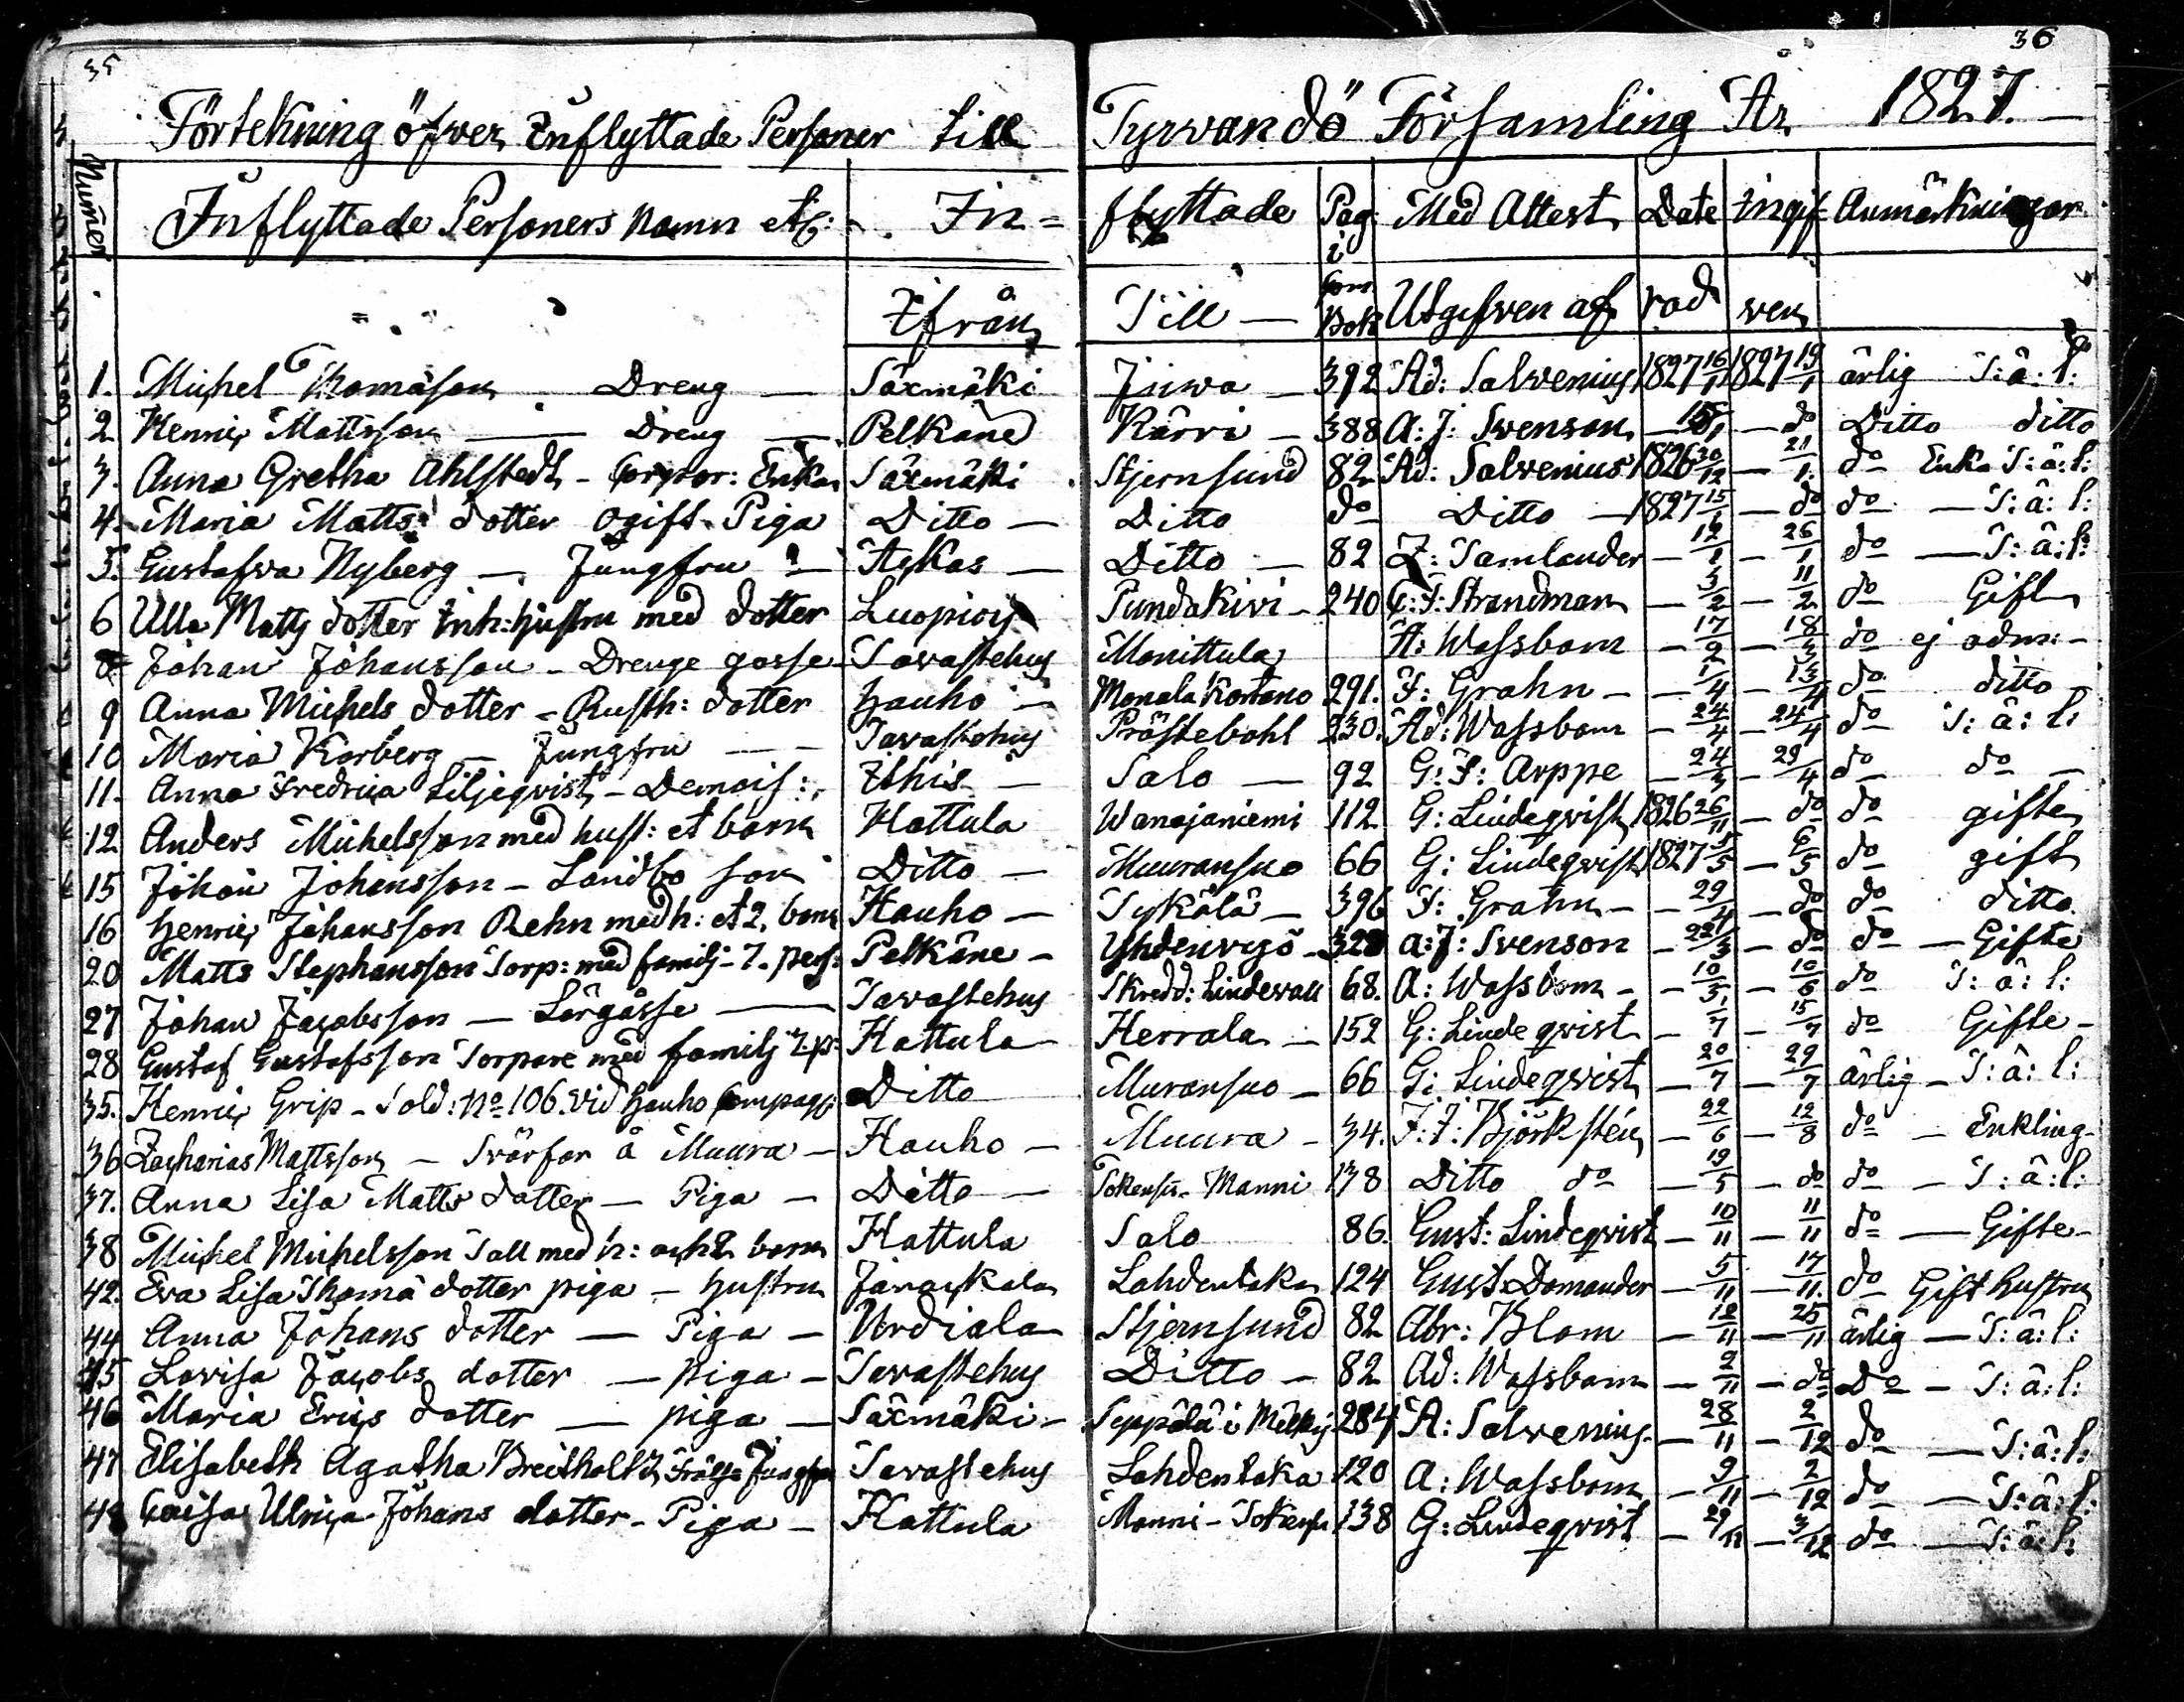 35 36
Förtekning öfver Inflyttade Personer till Tyrvändö Församling År 1827.
Numer Inflyttade Personers Namn etc: In= flyttade Pag: Med Attest Date ingif Anmärkningar
i
Ifrån Till — Com Bok Utgifven af rad ven
1. Michel Thomasson Dreng — Säxmäki Juwa — 392 Ad: Salvenius 1827 16/1 1827 19/1 ärlig T: ä: l:
2 Henric Mattsson — Dreng — Pelkäne Kärri — 388 A: J: Svenson — 15/1 — do Ditto ditto
3. Anna Gretha Ahlstedt - Corpor: Enka Säxmäki Stjernsund 82 Ad: Salvenius 1826 30/12 — 21/1 do Enka T: ä: l:
4. Maria Matts dotter ogift Piga Ditto — Ditto do Ditto — 1827 15/1 — do do — T: ä: l:
5. Gustafva Nyberg — Jungfru — Akas — Ditto — 82 Z: Tamlander — 12/1 — 26/1 do — T: ä: l:
6 Ulla Matts dotter Inh: hustru med dotter Luopiois Pundakivi — 240 C: F: Strandman — 3/2 — 11/2 do Gift
8 Johan Johansson — Drenge gosse — Tavastehus Monittula A: Wassbom — 17/2 — 18/3 do ej adm: —
9 Anna Michels dotter — Rusth: dotter Hauho — Monala Kortano 291. F: Grahn — — 1/4 — 13/4 do ditto
10 Maria Korberg — Jungfru — — Tavastehus Prästebohl 230. Ad: Wassbom — 24/4 — 24/4 do T: ä: l:
11. Anna Fredrica Liljeqvist — Demois: Ithis — Salo — 92 G: F: Arppe — 24/3 — 29/4 do do —
12 Anders Michelsson med hust: et barn Hattula Wanajaniemi 112 G: Lindeqvist 1826 26/11 — do do gifte
15 Johan Johansson — Landbo son Ditto — Muuransuo 66 G: Lindeqvist 1827 5/5 — 6/5 do gift
16 Henric Johansson Rehn med h: et 2. barn Hauho — Tykölä — 396 F: Grahn — — 29/4 — do do ditto
20 Matts Stephansson Torp: med familj — 7. pers: Pelkäne — Yhdenvejö — 328 A: J: Svenson — 22/3 — do do — Gifte
27 Johan Jacobsson — Lärgåsse — Tavastehus Skredd: Lindevall 68. A: Wassbom — — 10/5 — 10/6 do T: ä: l:
28 Gustaf Gustafsson Torpare med familj 7. p: Hattula Herrala — 152 G: Lindeqvist — 1/7 — 15/7 do Gifte —
35. Henric Grip — Sold: No 106. vid Hauho Compagn: Ditto Muransuo — 66 G: Lindeqvist — 20/7 — 29/7 ärlig — T: ä: l:
36 Zacharias Mattsson — Svärfar å Muura — Hauho — Muura — 34. J: J: Björkstén — 22/6 — 12/8 do — Enkling
37. Anna Lisa Matts dotter — Piga — Ditto — Manni 138 Ditto do — 19/5 — do do — T: ä: l:
38 Michel Michelsson Tall med h: och 2 barn Hattula Salo 86. Gust: Lindeqvist — 10/11 — 11/11 do — Gifte —
42. Eva Lisa Thoma dotter piga — hustru Janackala Lahdentaka 124 Gust: Domander — 5/11 — 17/11. do Gift hustru
44 Anna Johans dotter — Piga — Urdiala Stjernsund 82 Abr: Blom — 12/11 — 25/11 ärlig — T: ä: l:
45 Lovisa Jacobs dotter — piga — Tavastehus Ditto — 82 Ad: Wassbom — 2/11 — do Do — T: ä: l:
46 Maria Erics dotter — piga — Säxmäki — Seppälä i 284 A: Salvenius — 28/11 — 2/12 do — T: ä: l:
47 Elisabeth Agatha Breitholtz Frälse Jungfru Tavastehus Lahdentaka 120 A: Wassbom — 9/11 — 2/12 do — T: ä: l:
48 Caisa Ulrica Johans dotter — Piga — Hattula Manni — 138 G: Lindeqvist — 29/11 — 3/12 do — T: ä: l: